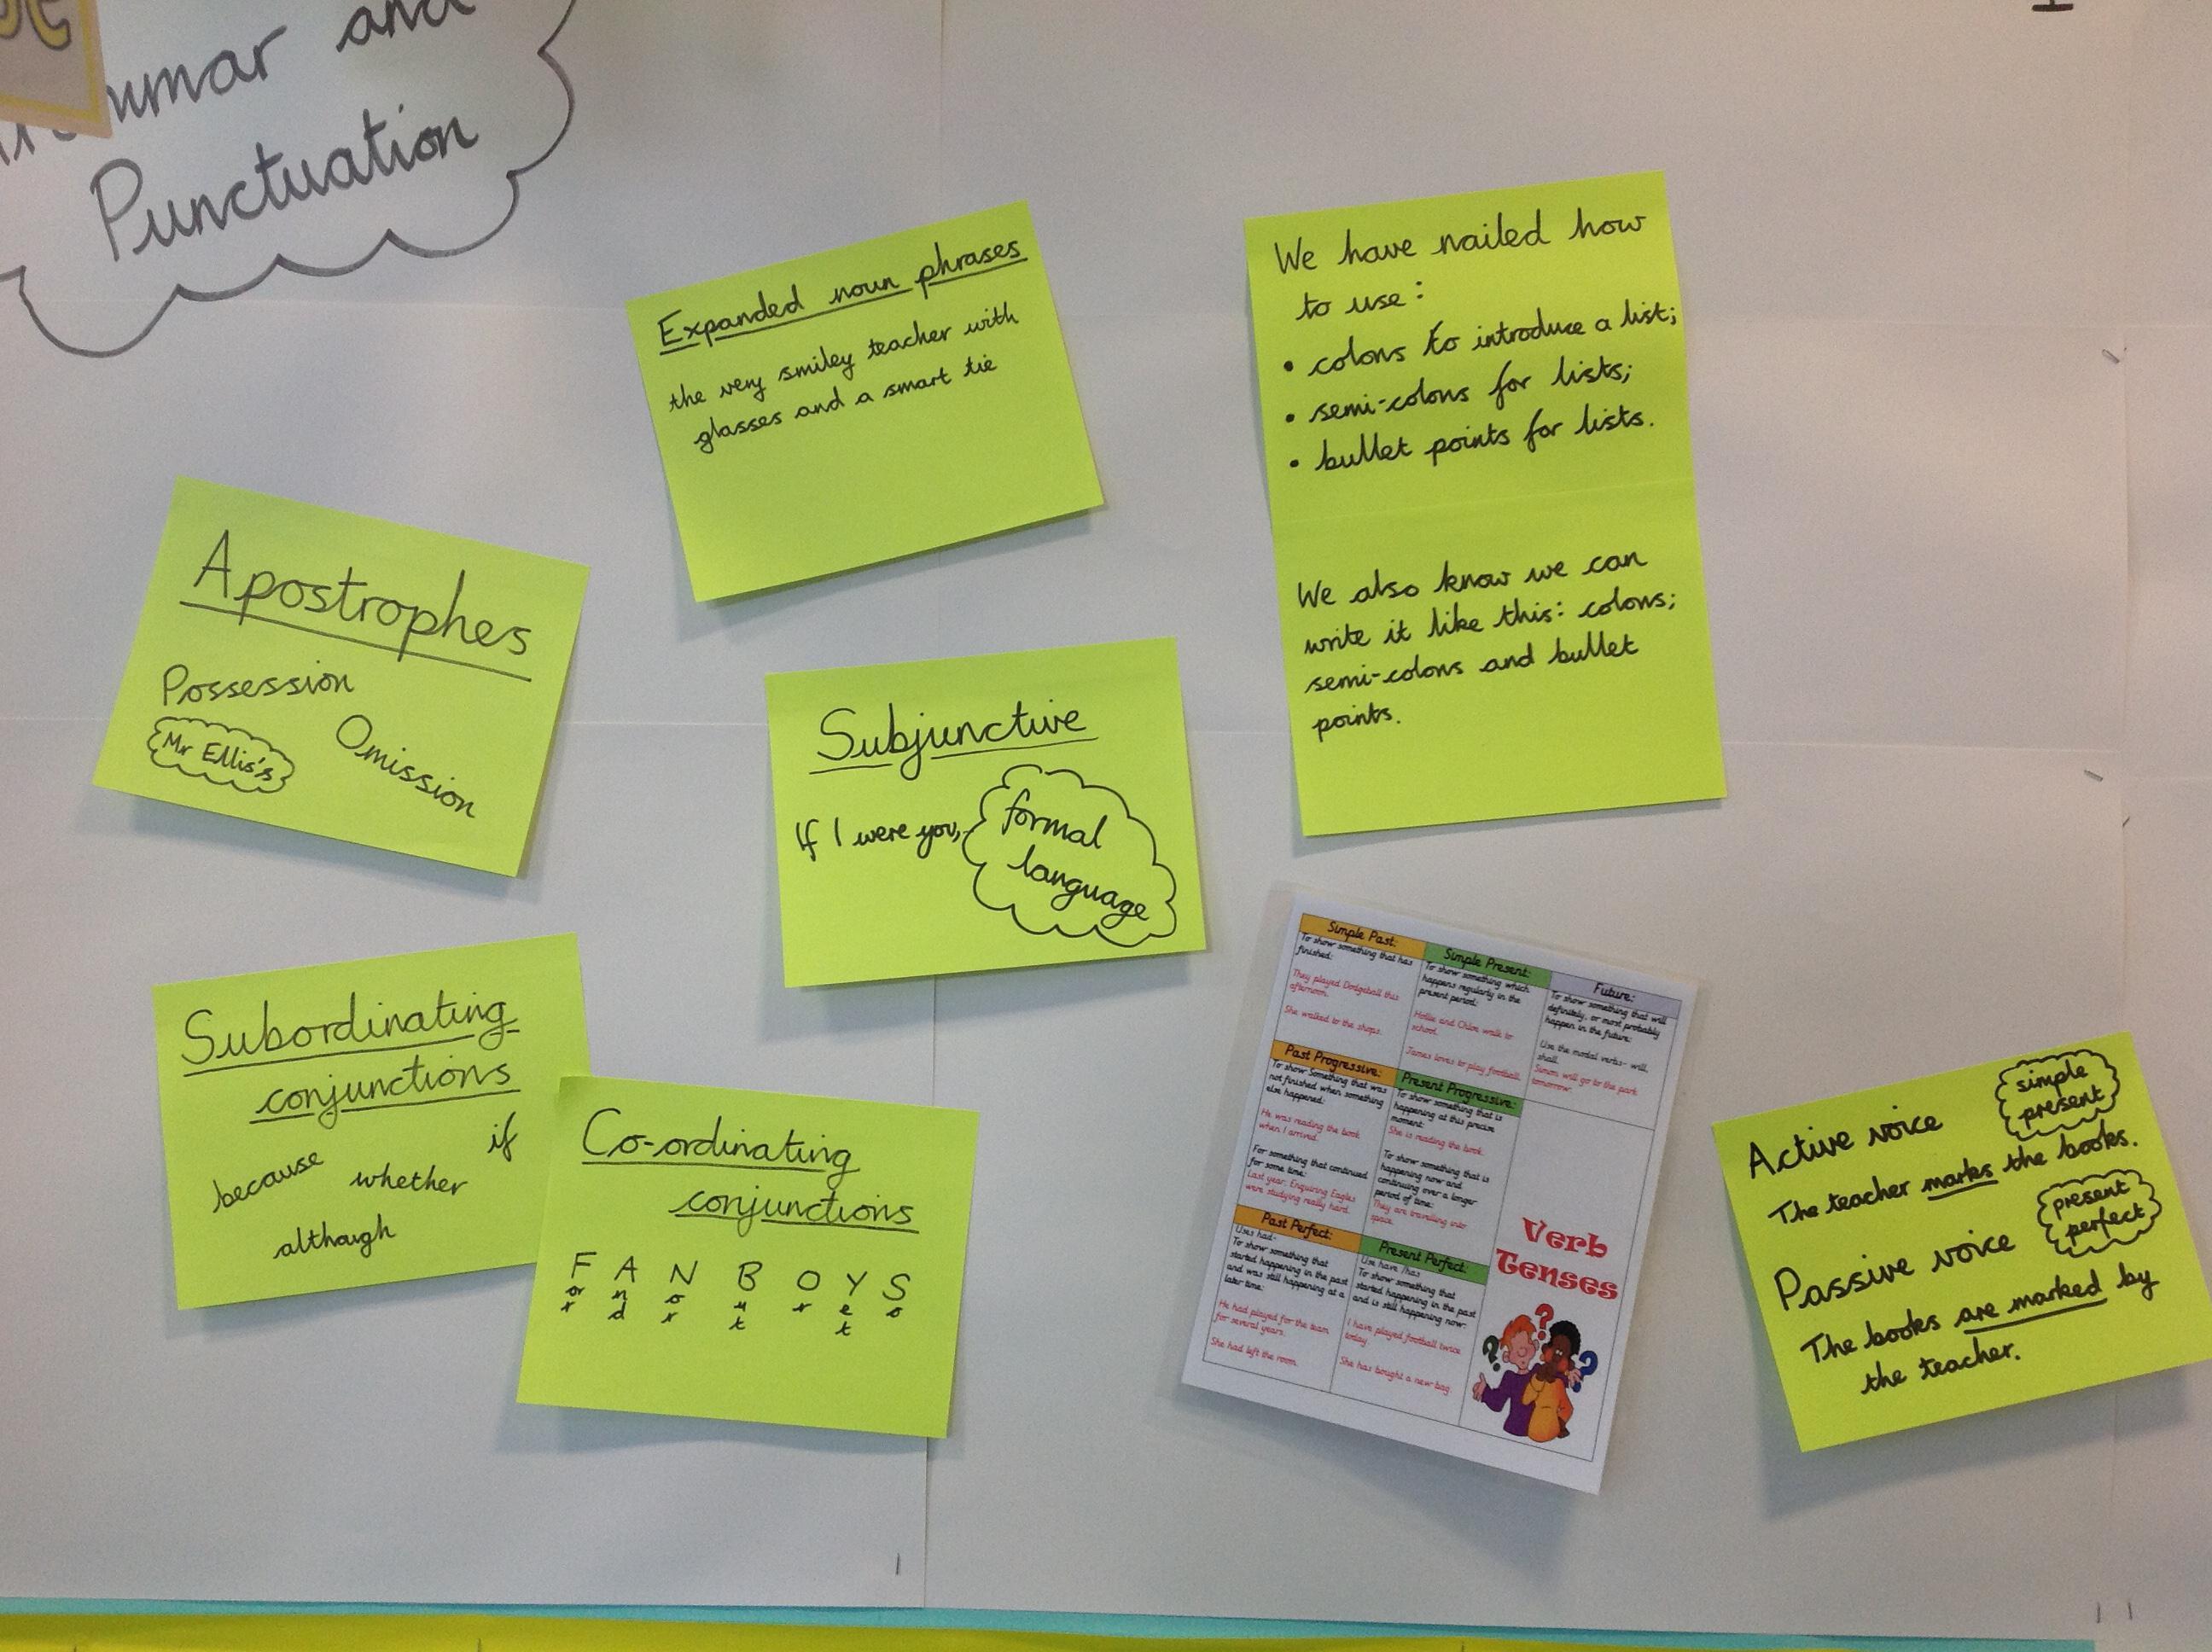 and
Punctuation
Expanded noun phrases
the very smiley teacher with
glasses and a smart tie
We have nailed how
to use:
• colons to introduce a list;
• semi-colons for lists;
• bullet points for lists.
We also know we can
write it like this: colons;
semi-colons and bullet
points.
Apostrophes
Possession
Mr Ellis's
Omission
Subjunctive
If I were you,
formal
language
Subordinating
conjunctions
because
whether
if
although
Co-ordinating
conjunctions
F A N B O Y S
or nd or ut r et o
Simple Past:
To show something that has
finished:
They played Dodgeball this
afternoon.
She walked to the shops.
Simple Present:
To show something which
happens regularly in the
present period:
Hollie and Chloe walk to
school.
James loves to play football.
Future:
To show something that will
definitely, or most probably
happen in the future:
Use the modal verbs- will,
shall.
Simon will go to the park
tomorrow.
Past Progressive:
To show Something that was
not finished when something
else happened:
He was reading the book
when I arrived.
For something that continued
for some time:
Last year, Enquiring Eagles
were studying really hard.
Present Progressive:
To show something that is
happening at this precise
moment:
She is reading the book.
To show something that is
happening now and
continuing over a longer
period of time:
They are travelling into
space.
Past Perfect:
Uses had-
To show something that
started happening in the past
and was still happening at a
later time:
He had played for the team
for several years.
She had left the room.
Present Perfect:
Use have /has
To show something that
started happening in the past
and is still happening now:
I have played football twice
today.
She has bought a new bag.
Verb
Tenses
Active voice
simple
present
The teacher marks the books.
Passive voice
present
perfect
The books are marked by
the teacher.